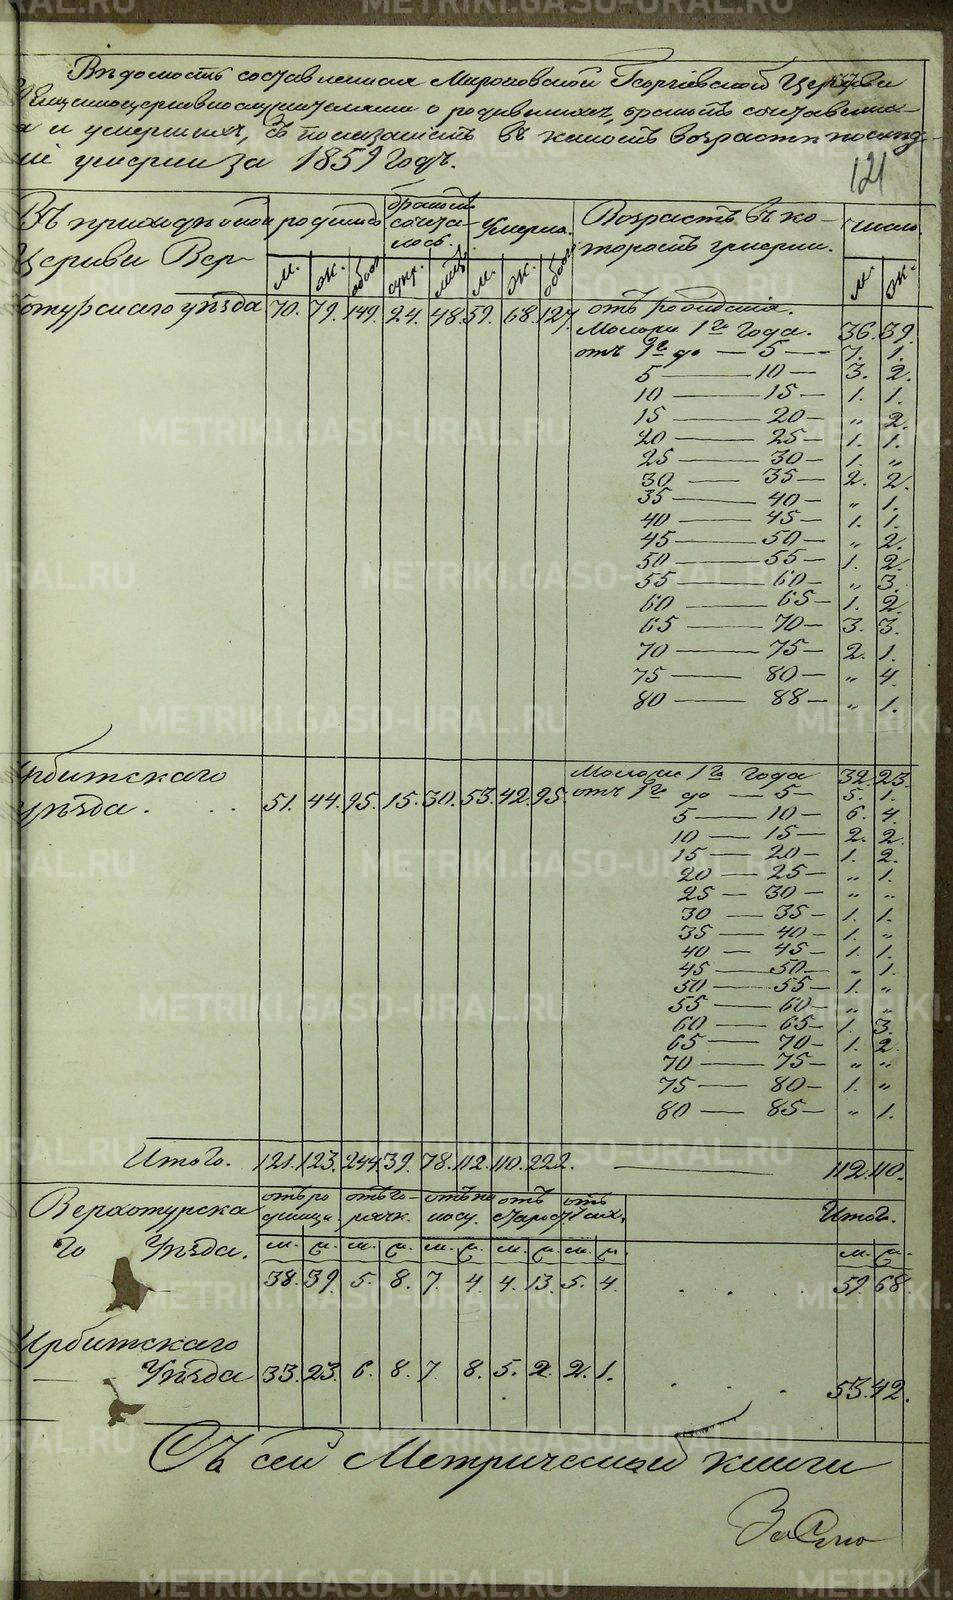 Вѣдомость составленная Мироновской Георгіевской Церкви
Священноцерковнослужителями о родившихся, бракомъ сочетавших-
я и умершихъ, съ показаніемъ въ какомъ возрастѣ
умерли за 1859 годъ.
121
Въ приходѣ оной
Церкви Вер-
хотурскаго уѣзда
родилось
бракомъ сочета-
лось.
Умерло.
Возрастъ въ ко-
торомъ умерли.
число
м. ж. обоего супр. лицъ м. ж. обоего м. ж.
70. 79. 149. 24. 48. 59. 68. 127.
отъ рожденія.
Моложе 1го года. 36. 39.
отъ 1го до — 5 — 7. 1.
5 — 10 — 3. 2.
10 — 15 — 1. 1.
15 — 20 — „ 2.
20 — 25 — 1. 1.
25 — 30 — 1. „
30 — 35 — 2. 2.
35 — 40 — „ 1.
40 — 45 — 1. 1.
45 — 50 — „ 2.
50 — 55 — 1. 2.
55 — 60 — „ 3.
60 — 65 — 1. 2.
65 — 70 — 3. 3.
70 — 75 — 2. 1.
75 — 80 — „ 4.
80 — 88 — „ 1.
Ирбитскаго
уѣзда. 51. 44. 95. 15. 30. 53. 42. 95.
Моложе 1го года 32. 23.
отъ 1го до — 5 — 5. 1.
5 — 10 — 6. 4.
10 — 15 — 2. 2.
15 — 20 — 1. 2.
20 — 25 — „ 1.
25 — 30 — „ „
30 — 35 — 1. 1.
35 — 40 — 1. „
40 — 45 — 1. 1.
45 — 50 — „ 1.
50 — 55 — 1. „
55 — 60 — „ „
60 — 65 — 1. 3.
65 — 70 — 1. 2.
70 — 75 — „ „
75 — 80 — 1. „
80 — 85 — „ 1.
Итого. 121. 123. 244. 39. 78. 112. 110. 222. — 112. 110.
Верхотурска
го Уѣзда.
отъ ро
димца.
отъ го-
рячк.
отъ по
носу.
отъ
старос.
Итого.
38. 39. 5. 8. 7. 4. 4. 13. 5. 4. 59. 68.
Ирбитскаго
Уѣзда 33. 23. 6. 8. 7. 8. 5. 2. 2. 1. 53. 42.
Къ сей Метрической книги
METRIKI.GASO-URAL.RU